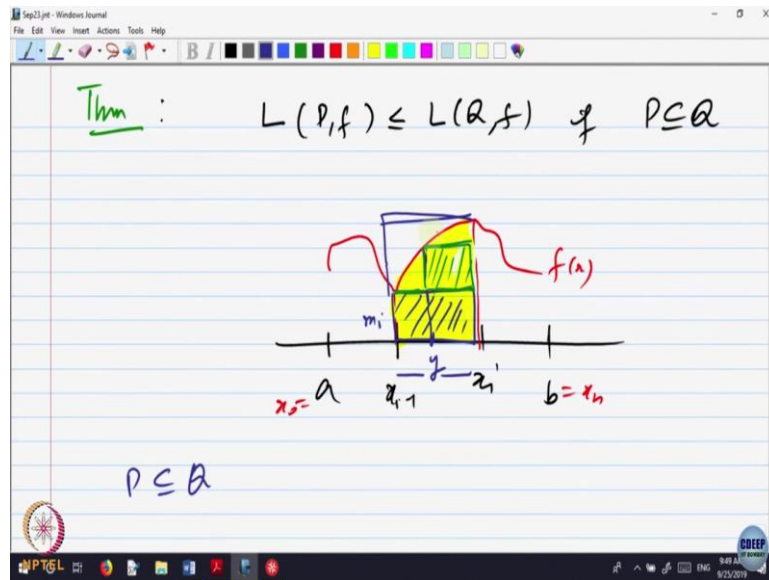 Sep23.jnt - Windows Journal
File Edit View Insert Actions Tools Help
B I
Thm : L(P,f) ≤ L(Q,f) if P⊆Q
f(x)
mi
y
x0= a xi-1 xi b = xn
P ⊆ Q
NPTEL
CDEEP
IIT BOMBAY
ENG
9:49 AM
9/25/2019